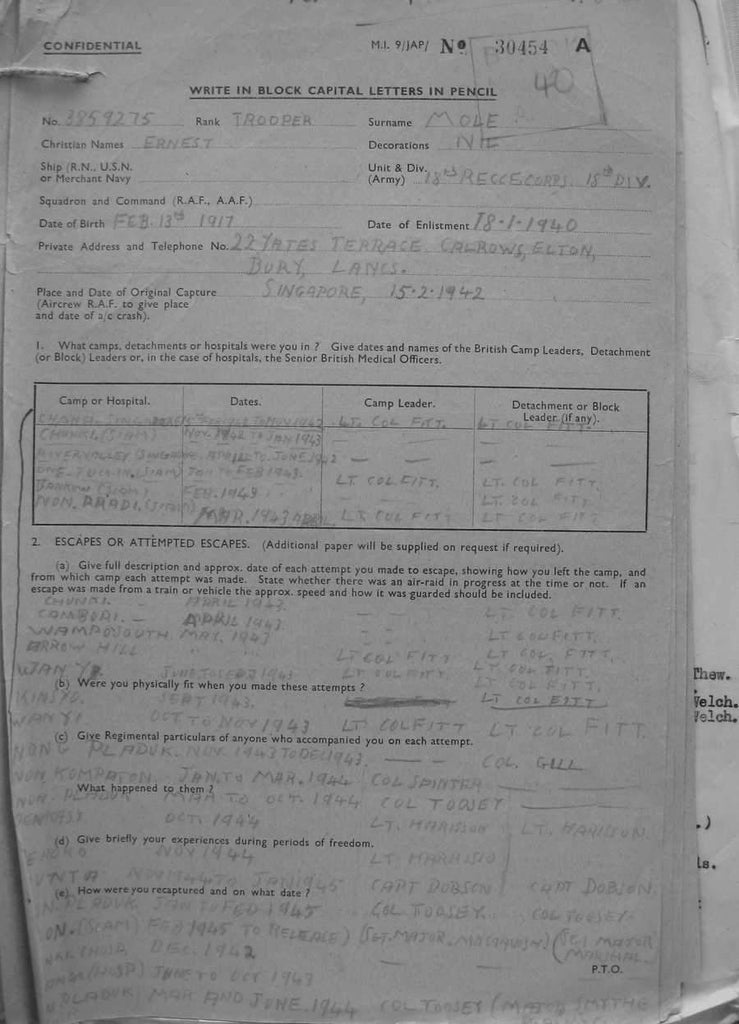 CONFIDENTIAL
M.I. 9/JAP/ No 30454 A
40
WRITE IN BLOCK CAPITAL LETTERS IN PENCIL
No. 3859275 Rank TROOPER Surname MOLE
Christian Names ERNEST Decorations NIL
Ship (R.N., U.S.N. or Merchant Navy Unit & Div. (Army) 18th RECCE CORPS. 18th DIV.
Squadron and Command (R.A.F., A.A.F.)
Date of Birth FEB. 13th 1917 Date of Enlistment 18-1-1940
Private Address and Telephone No. 22 YATES TERRACE CALROWS, ELTON,
BURY, LANCS.
Place and Date of Original Capture SINGAPORE, 15-2-1942
(Aircrew R.A.F. to give place
and date of a/c crash).
1. What camps, detachments or hospitals were you in ? Give dates and names of the British Camp Leaders, Detachment
(or Block) Leaders or, in the case of hospitals, the Senior British Medical Officers.
Camp or Hospital. Dates. Camp Leader. Detachment or Block
Leader (if any).
LT. COL FITT. LT COL FITT.
(SIAM) NOV. 1942 TO JAN 1943
TO JUNE
JAN TO FEB 1943.
FEB. 1943 LT COL FITT. LT. COL FITT.
LT. COL FITT
MAR. 1943 LT COL FITT LT COL FITT
2. ESCAPES OR ATTEMPTED ESCAPES. (Additional paper will be supplied on request if required).
(a) Give full description and approx. date of each attempt you made to escape, showing how you left the camp, and
from which camp each attempt was made. State whether there was an air-raid in progress at the time or not. If an
escape was made from a train or vehicle the approx. speed and how it was guarded should be included.
APRIL 1943.
APRIL 1943 LT. COL FITT.
MAY. 1943 LT COL FITT.
ARROW HILL LT COL FITT LT COL. FITT.
LT COL FITT. LT COL FITT.
(b) Were you physically fit when you made these attempts ?
KINSYO SEPT 1943. LT COL FITT
WANYI OCT TO NOV 1943 LT COL FITT LT COL FITT.
(c) Give Regimental particulars of anyone who accompanied you on each attempt.
NONG PLADUK. NOV. 1943 TO DEC 1943. COL. GILL
NON KOMPATON. JAN. TO MAR. 1944 COL SPINTER
What happened to them ?
NON. PLADUK MAR TO OCT. 1944 COL TOOSEY
OCT. 1944 LT. HARISSON LT. HARISSON.
(d) Give briefly your experiences during periods of freedom.
NOV 1944 LT
NOV 1944 TO JAN 1945 CAPT DOBSON CAPT DOBSON
(e) How were you recaptured and on what date ?
PLADUK JAN TO FEB 1945 COL TOOSEY. COL TOOSEY.
(SIAM) FEB 1945 TO RELEASE) (SGT. MAJOR (SGT MAJOR
DEC. 1942 MARSHAL
(HOSP) JUNE TO OCT 1943
P.T.O.
PLADUK MAR AND JUNE. 1944 COL TOOSEY (MAJOR SMYTHE
Thew.
Welch.
Welch.
.)
ls.